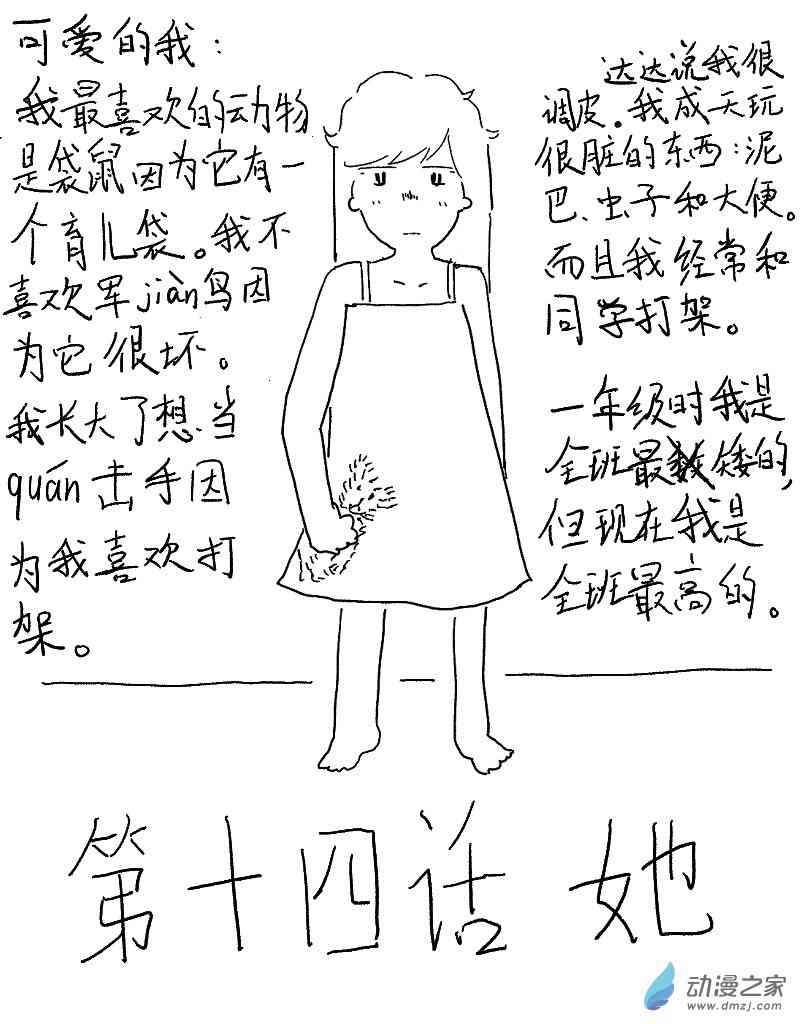 可爱的我：
我最喜欢的动物
是袋鼠因为它有一
个育儿袋。我不
喜欢军jiàn鸟因
为它很坏。
我长大了想当
quán击手因
为我喜欢打
架。
达达说我很
调皮。我成天玩
很脏的东西：泥
巴、虫子和大便。
而且我经常和
同学打架。
一年级时我是
全班最矮的，
但现在我是
全班最高的。
第十四话 她
动漫之家
www.dmzj.com